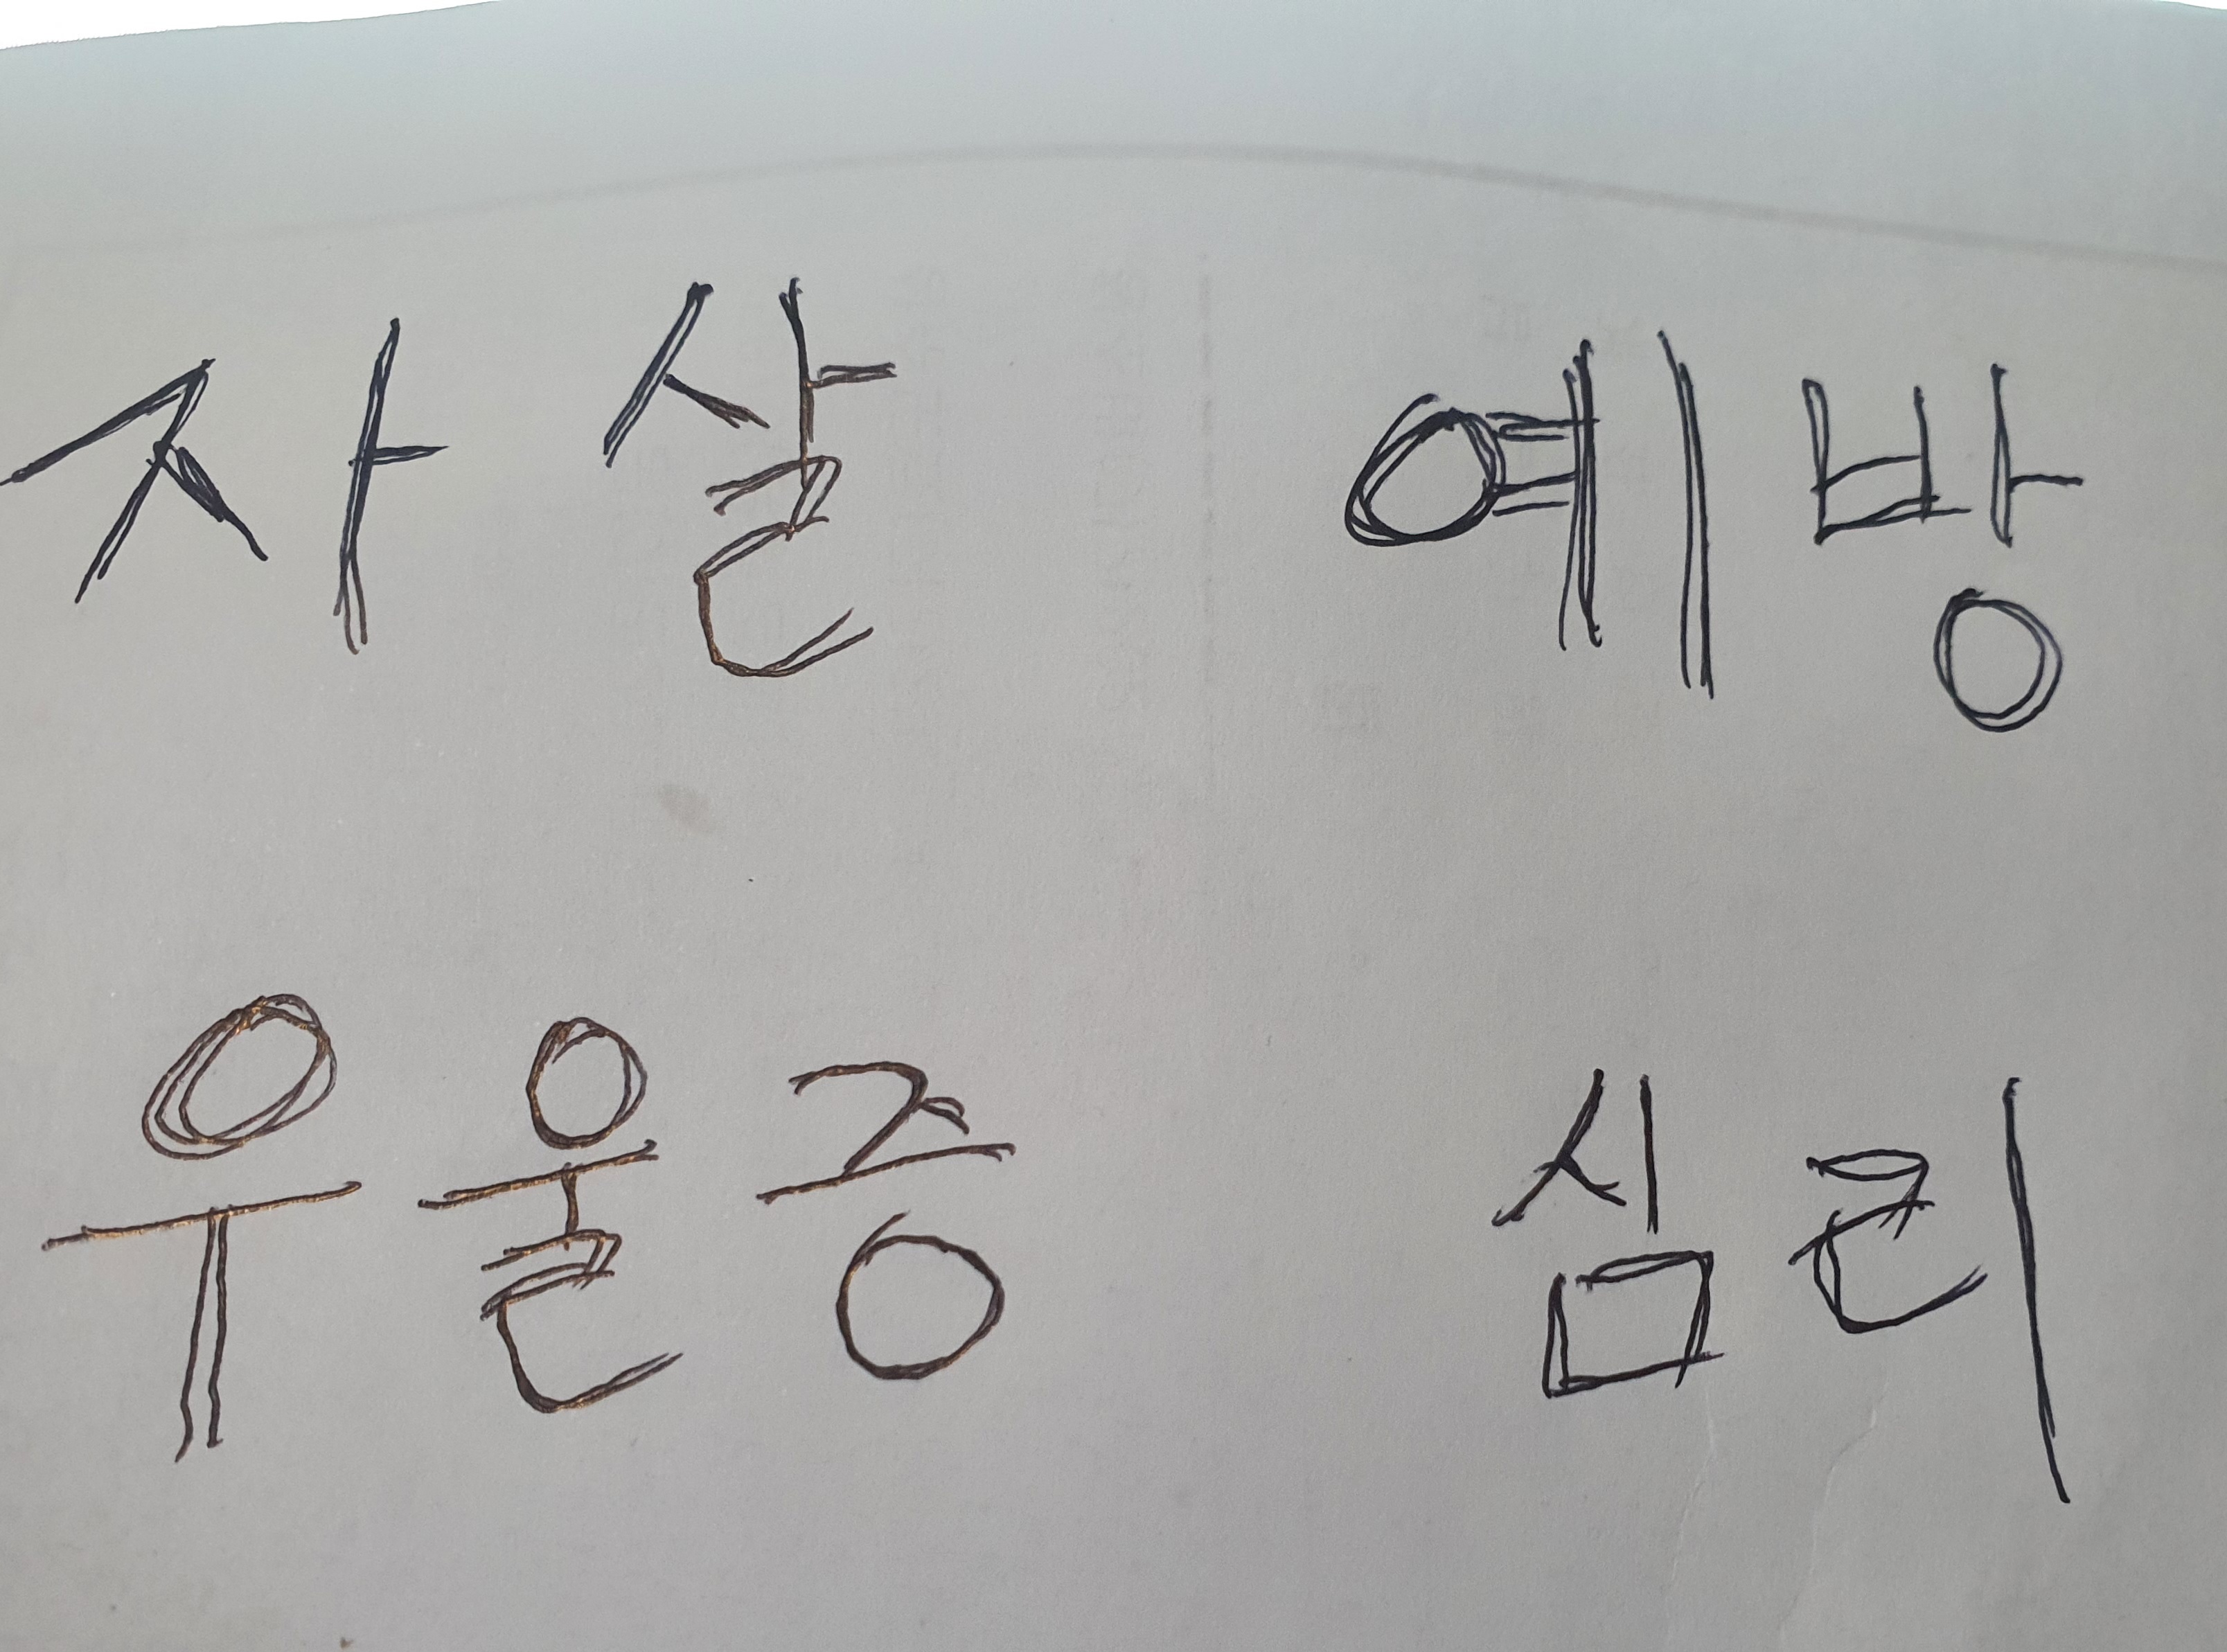 자살 예방
우울증 심리